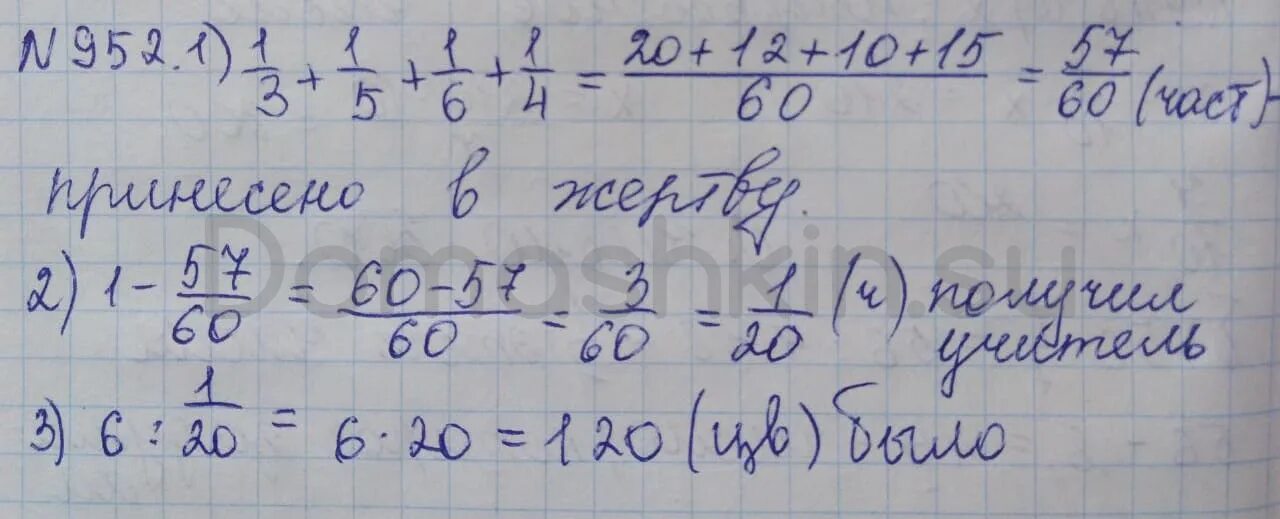 N 952. 1) 1/3 + 1/5 + 1/6 + 1/4 = (20+12+10+15)/60 = 57/60 (част)-
принесено в жертву.
2) 1 - 57/60 = (60-57)/60 = 3/60 = 1/20 (ч) получил
учитель
3) 6 : 1/20 = 6 · 20 = 120 (цв) было
Domashkin.su